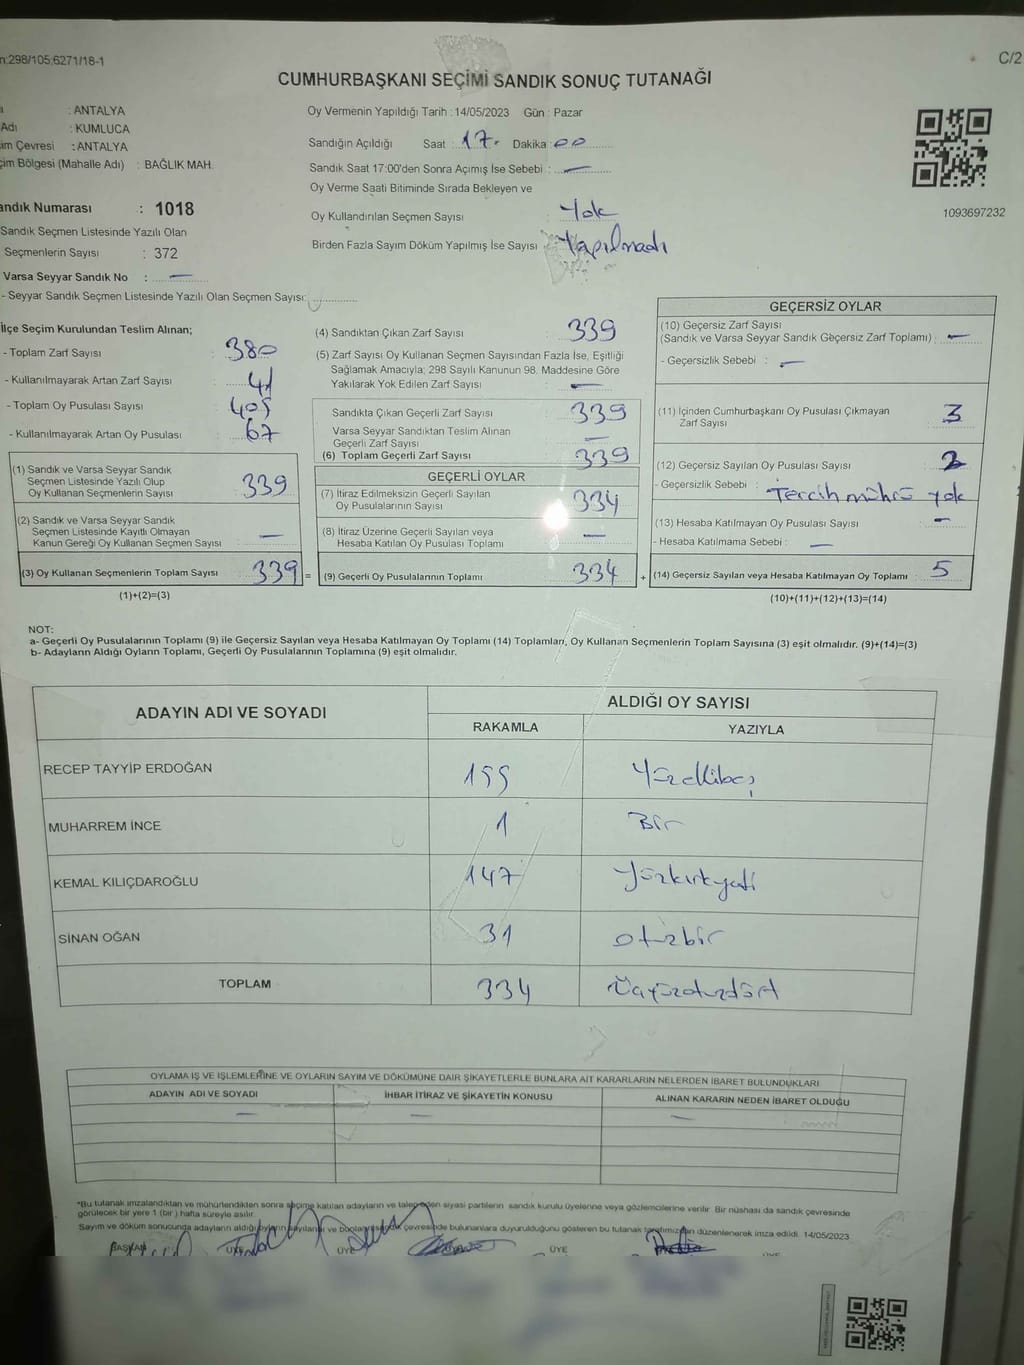 n:298/105:6271/18-1
C/2
CUMHURBAŞKANI SEÇİMİ SANDIK SONUÇ TUTANAĞI
: ANTALYA
Adı : KUMLUCA
im Çevresi : ANTALYA
çim Bölgesi (Mahalle Adı) : BAĞLIK MAH.
andık Numarası : 1018
Sandık Seçmen Listesinde Yazılı Olan
Seçmenlerin Sayısı : 372
Varsa Seyyar Sandık No : —
- Seyyar Sandık Seçmen Listesinde Yazılı Olan Seçmen Sayısı:
Oy Vermenin Yapıldığı Tarih : 14/05/2023 Gün : Pazar
Sandığın Açıldığı Saat : 17. Dakika : 00
Sandık Saat 17:00'den Sonra Açımış İse Sebebi : —
Oy Verme Saati Bitiminde Sırada Bekleyen ve
Oy Kullandırılan Seçmen Sayısı : Yok
Birden Fazla Sayım Döküm Yapılmış İse Sayısı : Yapılmadı
1093697232
İlçe Seçim Kurulundan Teslim Alınan;
- Toplam Zarf Sayısı : 380
- Kullanılmayarak Artan Zarf Sayısı : 41
- Toplam Oy Pusulası Sayısı : 405
- Kullanılmayarak Artan Oy Pusulası : 67
(1) Sandık ve Varsa Seyyar Sandık
Seçmen Listesinde Yazılı Olup
Oy Kullanan Seçmenlerin Sayısı 339
(2) Sandık ve Varsa Seyyar Sandık
Seçmen Listesinde Kayıtlı Olmayan
Kanun Gereği Oy Kullanan Seçmen Sayısı —
(3) Oy Kullanan Seçmenlerin Toplam Sayısı 339
(1)+(2)=(3)
(4) Sandıktan Çıkan Zarf Sayısı : 339
(5) Zarf Sayısı Oy Kullanan Seçmen Sayısından Fazla İse, Eşitliği
Sağlamak Amacıyla; 298 Sayılı Kanunun 98. Maddesine Göre
Yakılarak Yok Edilen Zarf Sayısı : —
Sandıkta Çıkan Geçerli Zarf Sayısı : 339
Varsa Seyyar Sandıktan Teslim Alınan
Geçerli Zarf Sayısı —
(6) Toplam Geçerli Zarf Sayısı : 339
GEÇERLİ OYLAR
(7) İtiraz Edilmeksizin Geçerli Sayılan
Oy Pusulalarının Sayısı 334
(8) İtiraz Üzerine Geçerli Sayılan veya
Hesaba Katılan Oy Pusulası Toplamı —
= (9) Geçerli Oy Pusulalarının Toplamı 334
GEÇERSİZ OYLAR
(10) Geçersiz Zarf Sayısı
(Sandık ve Varsa Seyyar Sandık Geçersiz Zarf Toplamı) : —
- Geçersizlik Sebebi : —
(11) İçinden Cumhurbaşkanı Oy Pusulası Çıkmayan
Zarf Sayısı : 3
(12) Geçersiz Sayılan Oy Pusulası Sayısı : 2
- Geçersizlik Sebebi : Tercih mührü yok
(13) Hesaba Katılmayan Oy Pusulası Sayısı : —
- Hesaba Katılmama Sebebi : —
+ (14) Geçersiz Sayılan veya Hesaba Katılmayan Oy Toplamı : 5
(10)+(11)+(12)+(13)=(14)
NOT:
a- Geçerli Oy Pusulalarının Toplamı (9) ile Geçersiz Sayılan veya Hesaba Katılmayan Oy Toplamı (14) Toplamları, Oy Kullanan Seçmenlerin Toplam Sayısına (3) eşit olmalıdır. (9)+(14)=(3)
b- Adayların Aldığı Oyların Toplamı, Geçerli Oy Pusulalarının Toplamına (9) eşit olmalıdır.
ADAYIN ADI VE SOYADI ALDIĞI OY SAYISI
RAKAMLA YAZIYLA
RECEP TAYYİP ERDOĞAN 155 Yüzellibeş
MUHARREM İNCE 1 Bir
KEMAL KILIÇDAROĞLU 147 Yüzkırkyedi
SİNAN OĞAN 31 otuzbir
TOPLAM 334 Üçyüzotuzdört
OYLAMA İŞ VE İŞLEMLERİNE VE OYLARIN SAYIM VE DÖKÜMÜNE DAİR ŞİKAYETLERLE BUNLARA AİT KARARLARIN NELERDEN İBARET BULUNDUKLARI
ADAYIN ADI VE SOYADI İHBAR İTİRAZ VE ŞİKAYETİN KONUSU ALINAN KARARIN NEDEN İBARET OLDUĞU
— — —
*Bu tutanak imzalandıktan ve mühürlendikten sonra seçime katılan adayların ve talep eden siyasi partilerin sandık kurulu üyelerine veya gözlemcilerine verilir. Bir nüshası da sandık çevresinde
görülecek bir yere 1 (bir) hafta süreyle asılır.
Sayım ve döküm sonucunda adayların aldığı oyların sayılarını ve çevresinde bulunanlara duyurulduğunu gösteren bu tutanak tarafımızdan düzenlenerek imza edildi. 14/05/2023
BAŞKAN ÜYE ÜYE ÜYE ÜYE